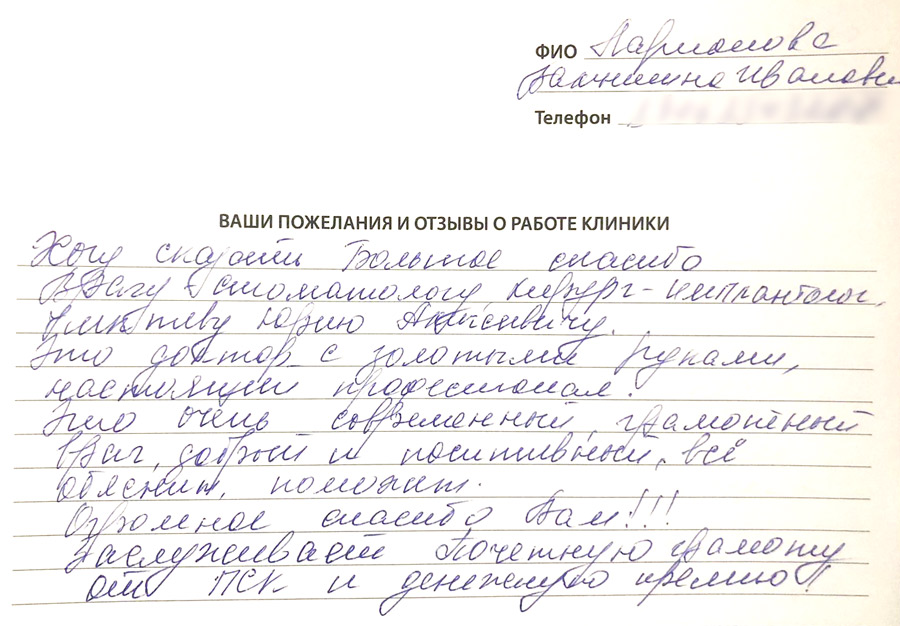 ФИО Ларионова
Валентина Ивановн
Телефон
ВАШИ ПОЖЕЛАНИЯ И ОТЗЫВЫ О РАБОТЕ КЛИНИКИ
Хочу сказать Большое спасибо
Врачу стоматологу, хирург-имплантолог,
Юрию Алексеевичу.
Это доктор с золотыми руками,
настоящий профессионал!
Это очень современный, грамотный
врач, добрый и позитивный, всё
объяснит, поможет.
Огромное спасибо Вам!!!
Заслуживает Почетную грамоту
от ПСК и денежную премию!!